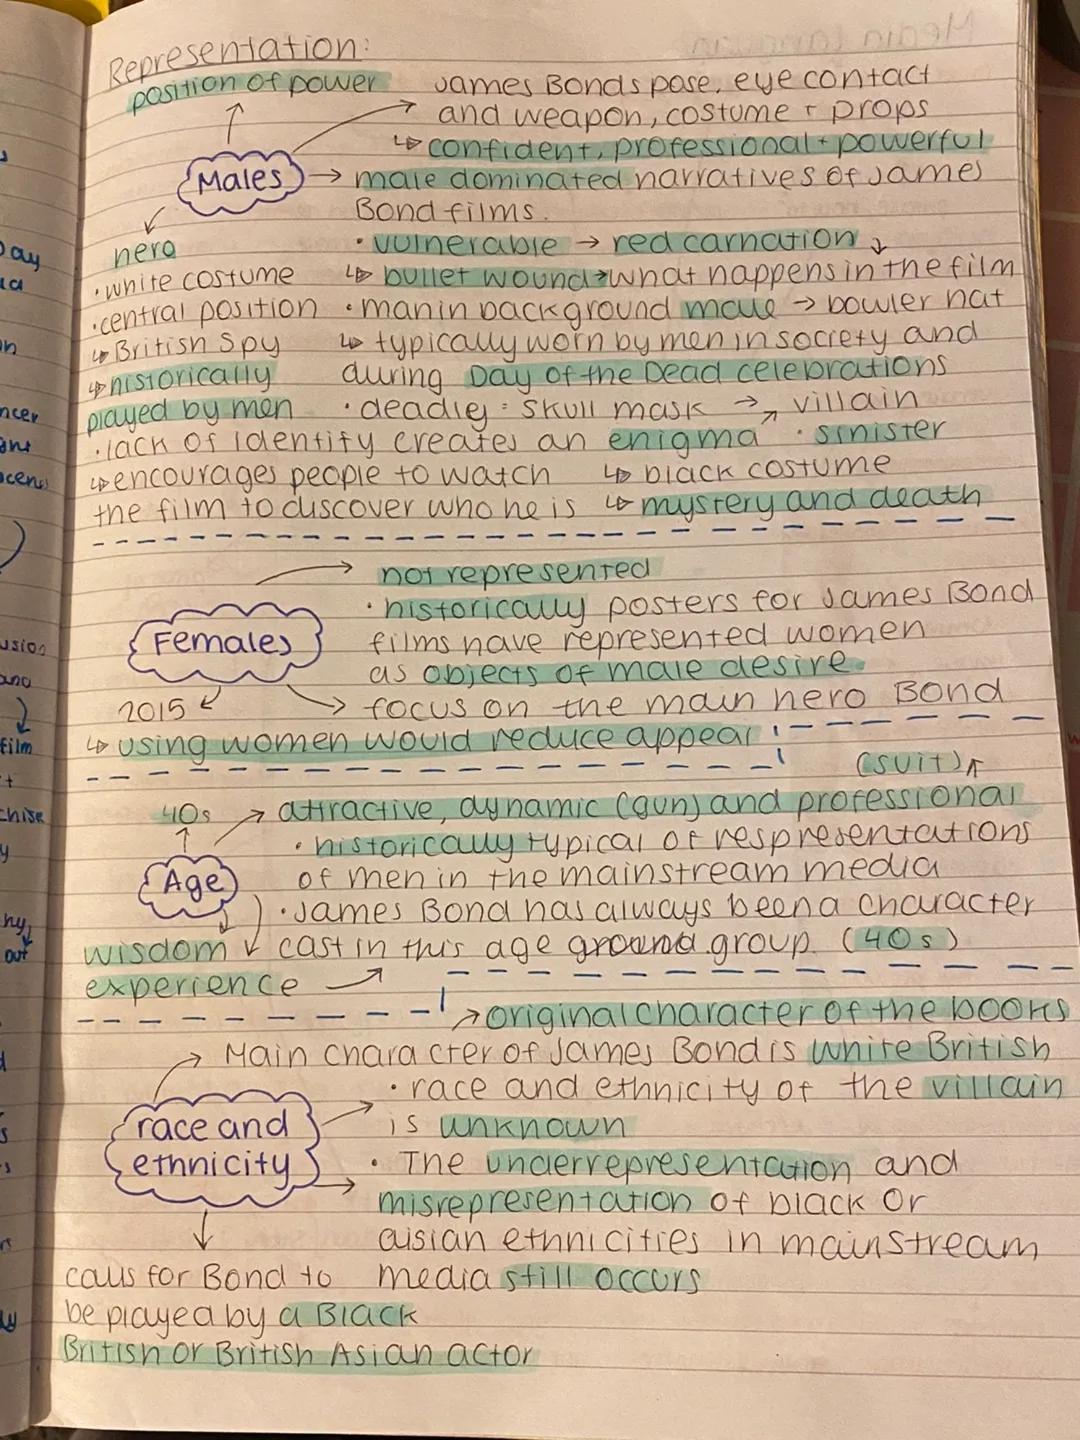 Representation:
position of power
James Bonds pose, eye contact
and weapon, costume + props
↳ confident, professional + powerful
Males → male dominated narratives of James
Bond films.
hero
• vulnerable → red carnation ↓
• white costume
↳ bullet wound → what happens in the film
• central position
• man in background male → bowler hat
↳ British Spy
↳ typically worn by men in society and
↳ historically
during Day of the Dead celebrations
played by men
• deadley: skull mask → villain
• lack of identity creates an enigma
• sinister
↳ encourages people to watch
↳ black costume
the film to discover who he is
↳ mystery and death
not represented
• historically posters for James Bond
Females
films have represented women
as objects of male desire.
2015
→ focus on the main hero Bond
↳ using women would reduce appeal
(suit)
40s
→ attractive, dynamic (gun) and professional
• historically typical of respresentations
Age
of men in the mainstream media
• James Bond has always been a character
wisdom
cast in this age ground group (40s)
experience
→ original character of the books
→ Main character of James Bond is White British
• race and ethnicity of the villain
race and
is unknown
ethnicity
• The underrepresentation and
misrepresentation of black or
aisian ethnicities in mainstream
calls for Bond to
media still occurs
be played by a Black
British or British Asian actor
Day
film
out